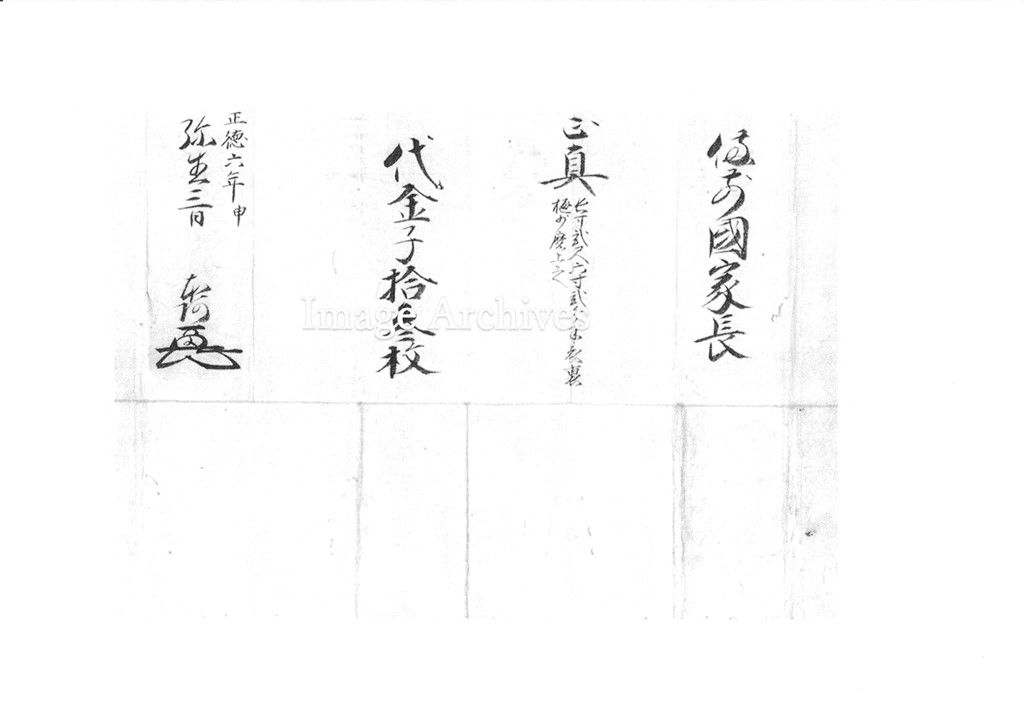 備前國家長
正真
長サ貳尺六寸貳分半表裏
樋少磨上之
代金子拾参枚
正徳六年申
弥生三日
Image Archives